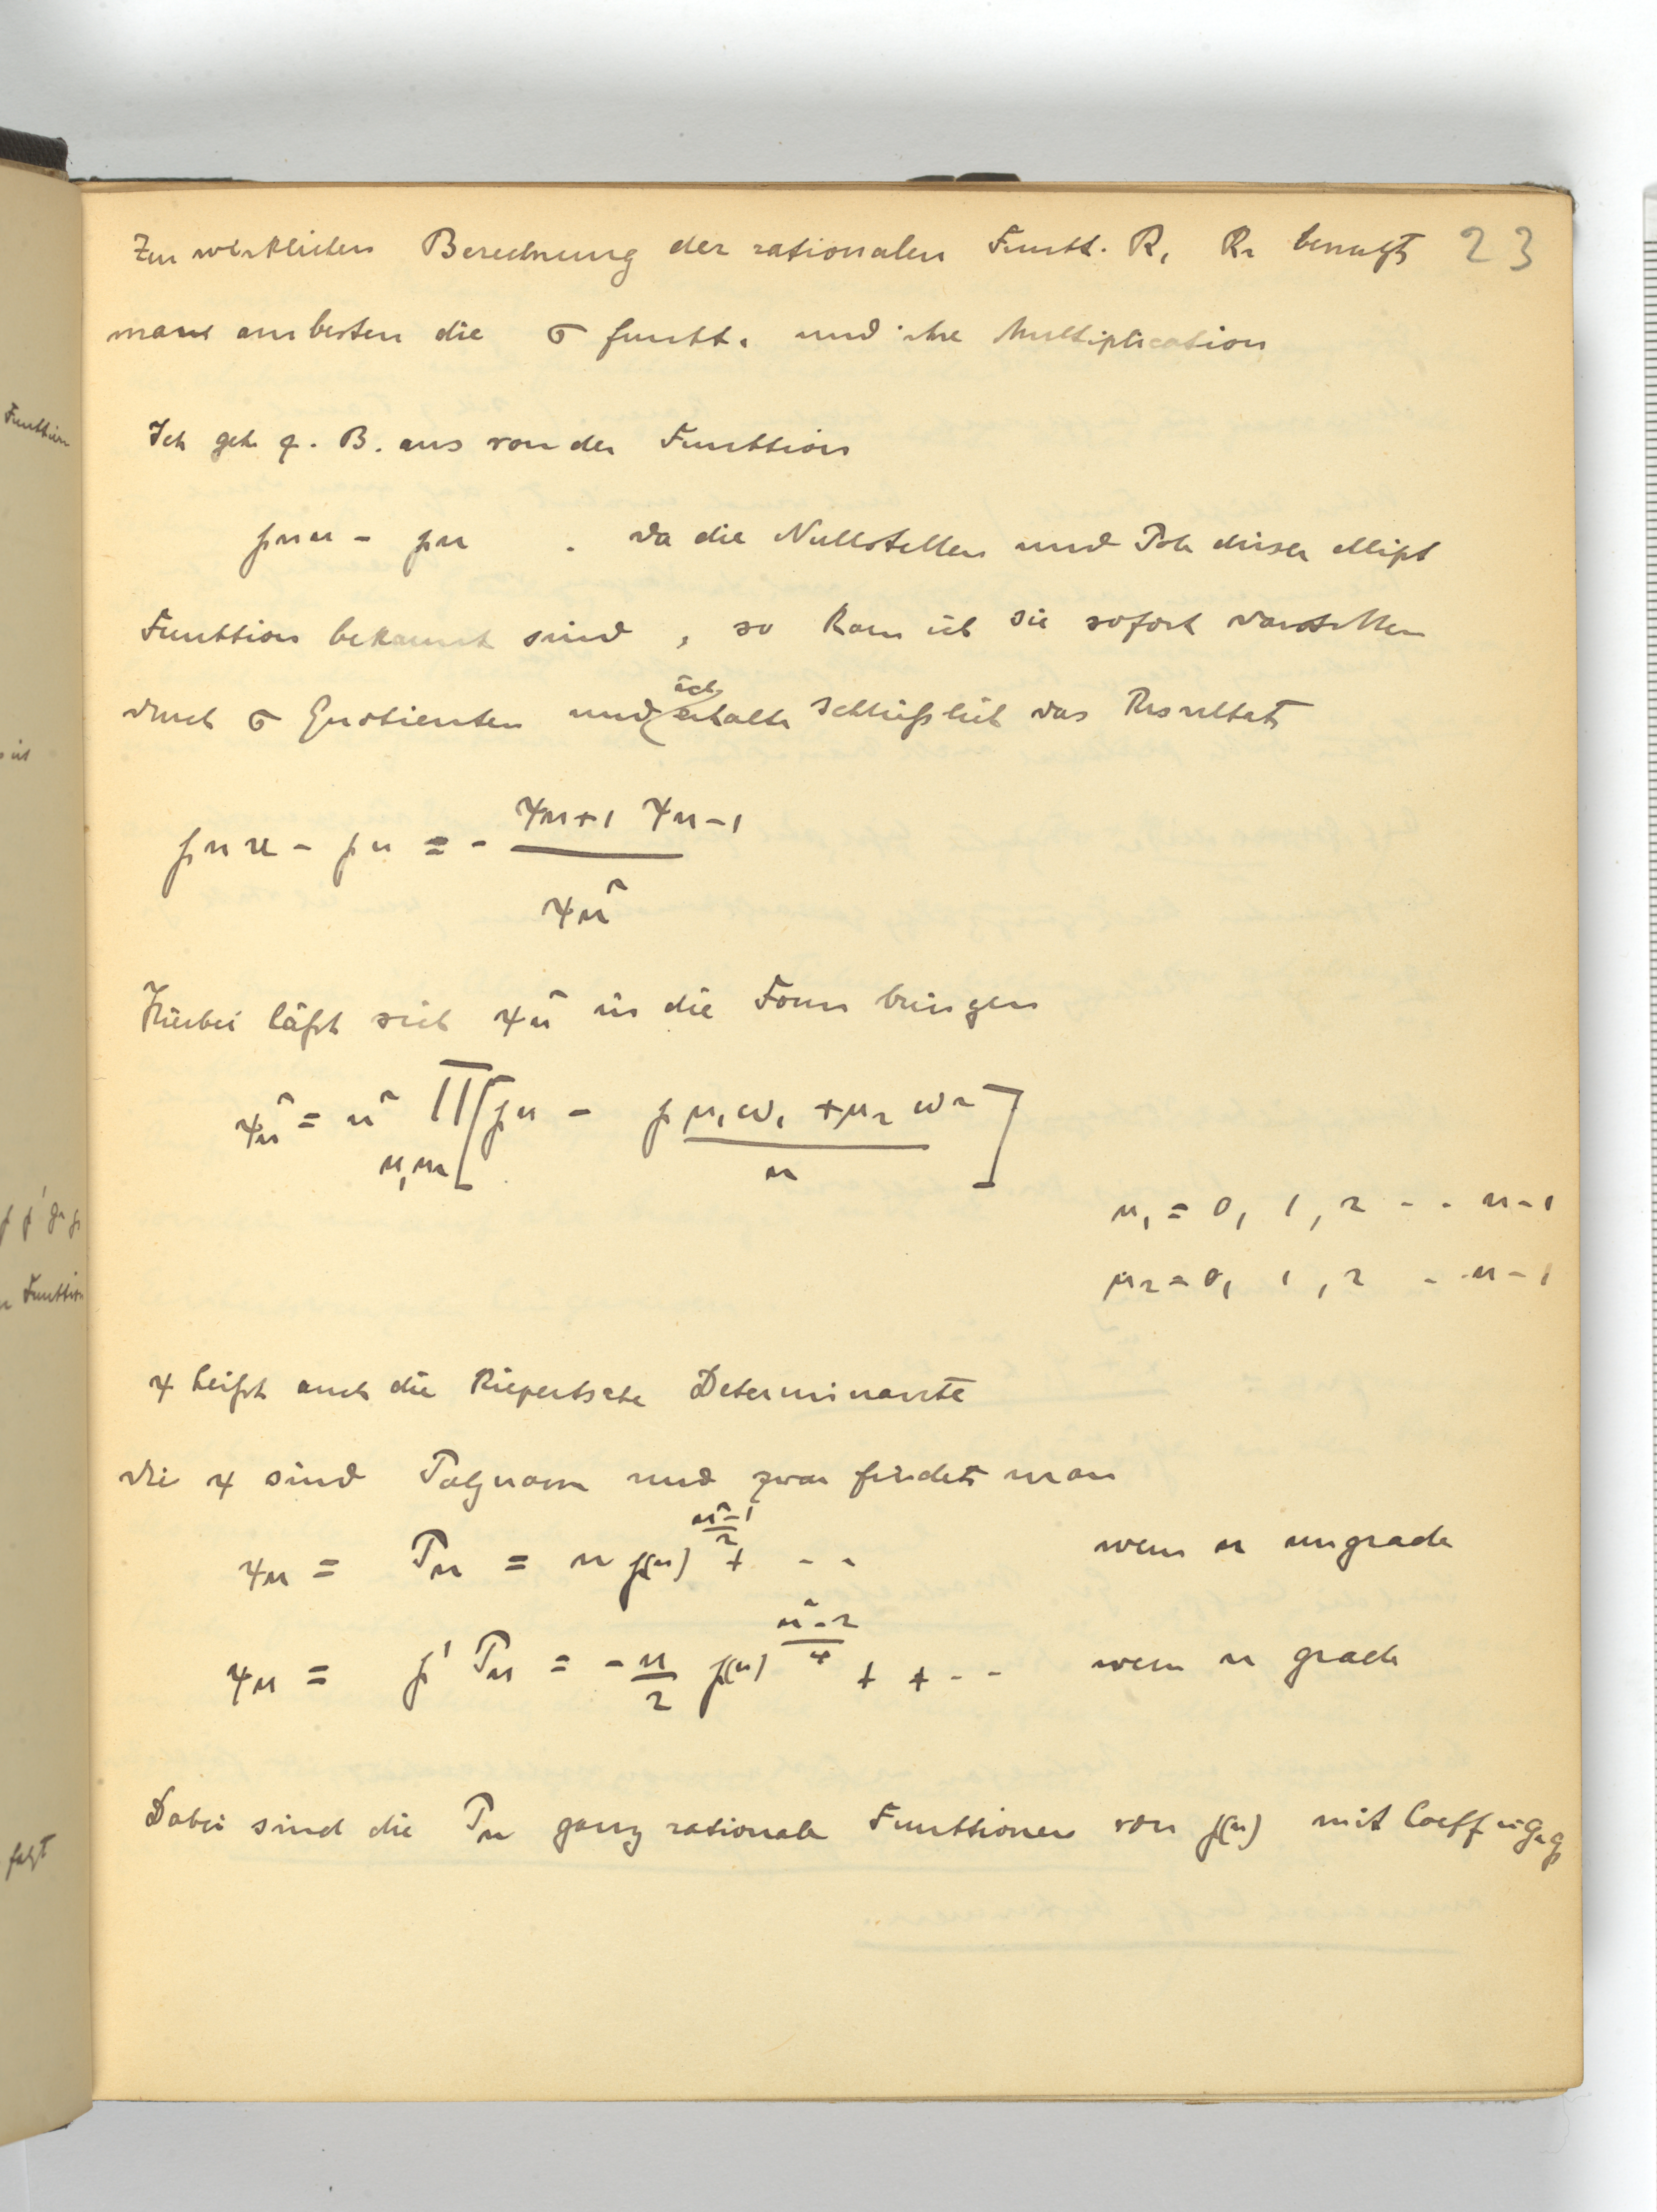 Funktion
ist
℘ ℘' g₂ g₃
Funktion
folgt
Zur wirklichen Berechnung der rationalen Funkt. R₁ R₂ benutzt 23
man am besten die σ funkt. und ihre Multiplication
Ich gehe z. B. aus von der Funktion
℘nu - ℘u . da die Nullstellen und Pole dieser ellipt
Funktion bekannt sind , so kann ich sie sofort darstellen
durch σ Quotienten und ich erhalte schließlich das Resultat
℘nu - ℘u = - (ψn+1 ψn-1) / ψn²
Hierbei läßt sich ψn² in die Form bringen
ψn² = n² ∏ [℘u - ℘ (μ₁ω₁ + μ₂ω₂) / n]
μ₁μ₂
μ₁ = 0, 1, 2 - - n-1
μ₂ = 0, 1, 2 - - n-1
ψ heißt auch die Kiepertsche Determinante
die ψ sind Polynome und zwar findet man
ψn = Pn = n ℘(u)^((n²-1)/2) + - - wenn n ungrade
ψn = ℘' Pn = - n/2 ℘(u)^((n²-2)/4) + + - - wenn n grade
Dabei sind die Pn ganz rationale Funktionen von ℘(u) mit Coeff in g₂ g₃